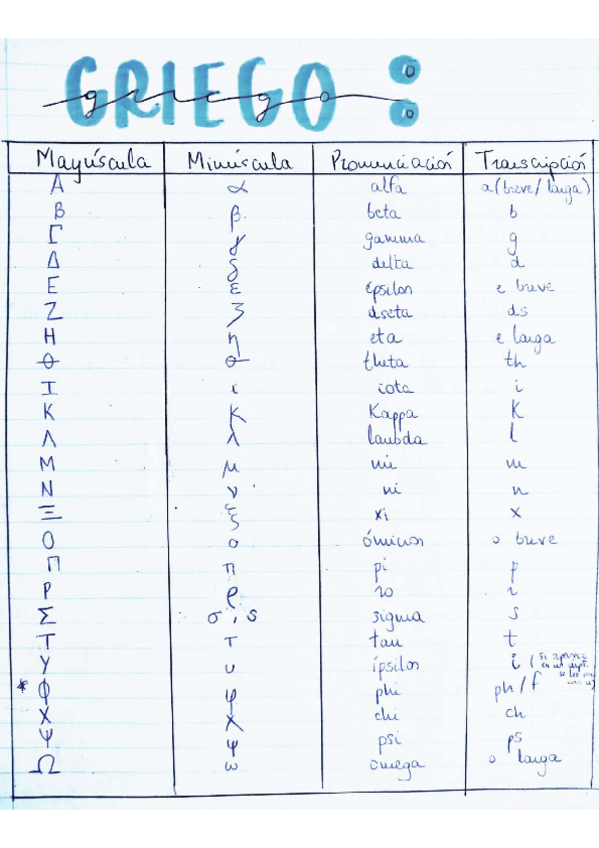 GRIEGO :
griego
Mayúscula Minúscula Pronunciación Transcripción
Α α alfa a (breve/larga)
Β β beta b
Γ γ gamma g
Δ δ delta d
Ε ε épsilon e breve
Ζ ζ dseta ds
Η η eta e larga
Θ θ theta th
Ι ι iota i
Κ κ Kappa K
Λ λ lambda l
Μ μ mi m
Ν ν ni n
Ξ ξ xi x
Ο ο ómicron o breve
Π π pi p
Ρ ρ ro r
Σ σ, s sigma s
Τ τ tau t
Υ υ ípsilon i (si aparece
en un dipt.
se lee
u)
* Φ φ phi ph/f
Χ χ chi ch
Ψ ψ psi ps
Ω ω omega o larga